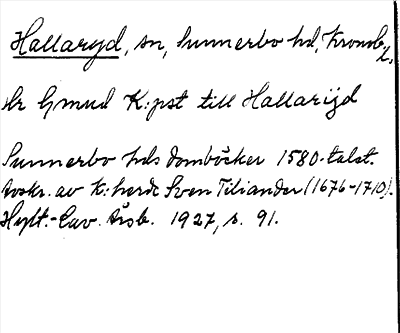 Hallaryd, sn, Sunnerbo hd, Kronob. l.
Hr Gmud K:pst till Hallarijd
Sunnerbo hds domböcker 1580-talst.
Avskr. av K:herde Sven Tiliander (1676-1710).
Hylt.-Cav. Årsb. 1927, s. 91.